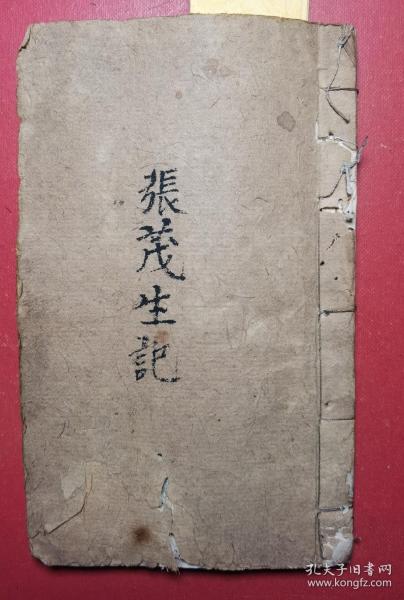 張茂生記
孔夫子旧书网
www.kongfz.com